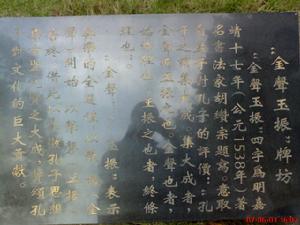 “金聲玉振”牌坊
“金聲玉振”四字爲明嘉
靖十七年（公元1538年）著
名書法家胡纘宗題寫。意取
孟子對孔子的評價：孔
子之謂集大成。集大成者，
金聲而玉振之也。金聲也者，
始條理也；玉振之也者，終條
理也。
“金聲”、 玉振”表示
奏樂的全過程，以擊 金
聲）開始，以擊磬（玉振
告終，借此 孔子思想
聖賢之大成，贊頌孔
子對文化的巨大貢獻。
07/06/01